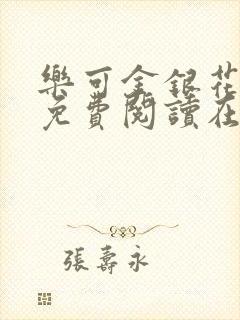 樂可金銀花
免費閱讀在
張壽永